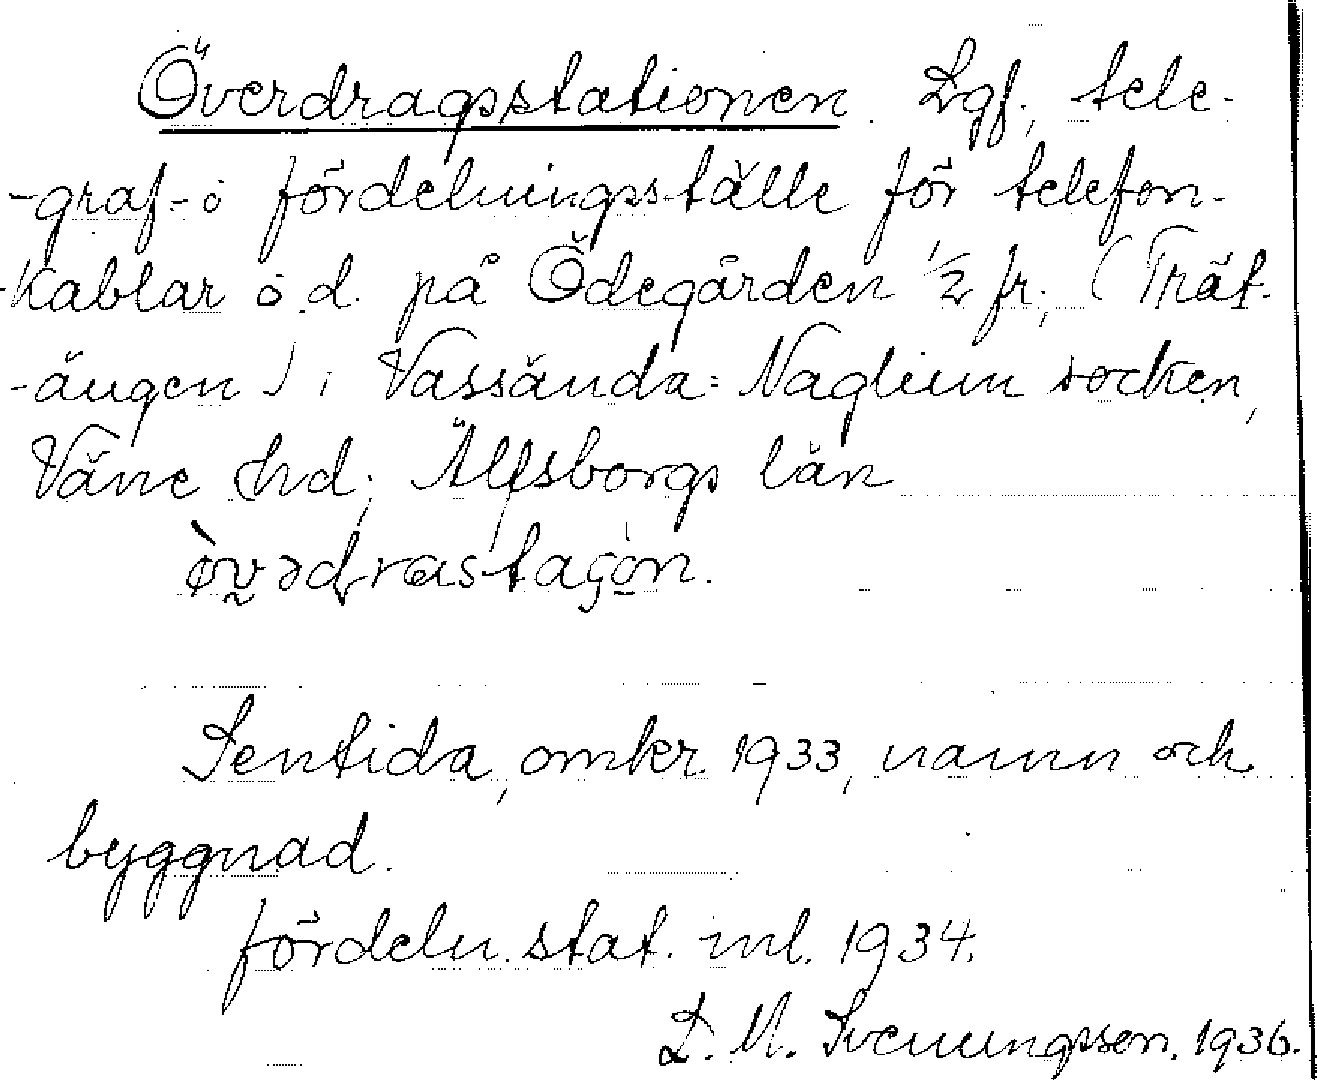 Överdragsstationen. Lgf, tele-
-graf- o fördelningsställe för telefon-
-kablar o.d. på Ödegården 1/2 fr; (Trät-
-ängen) i Vassända=Naglum socken,
Väne hd; Älfsborgs län
Sentida, omkr. 1933, namn och
byggnad.
fördeln. stat. ml. 1934.
D. M. Svenungsson. 1936.